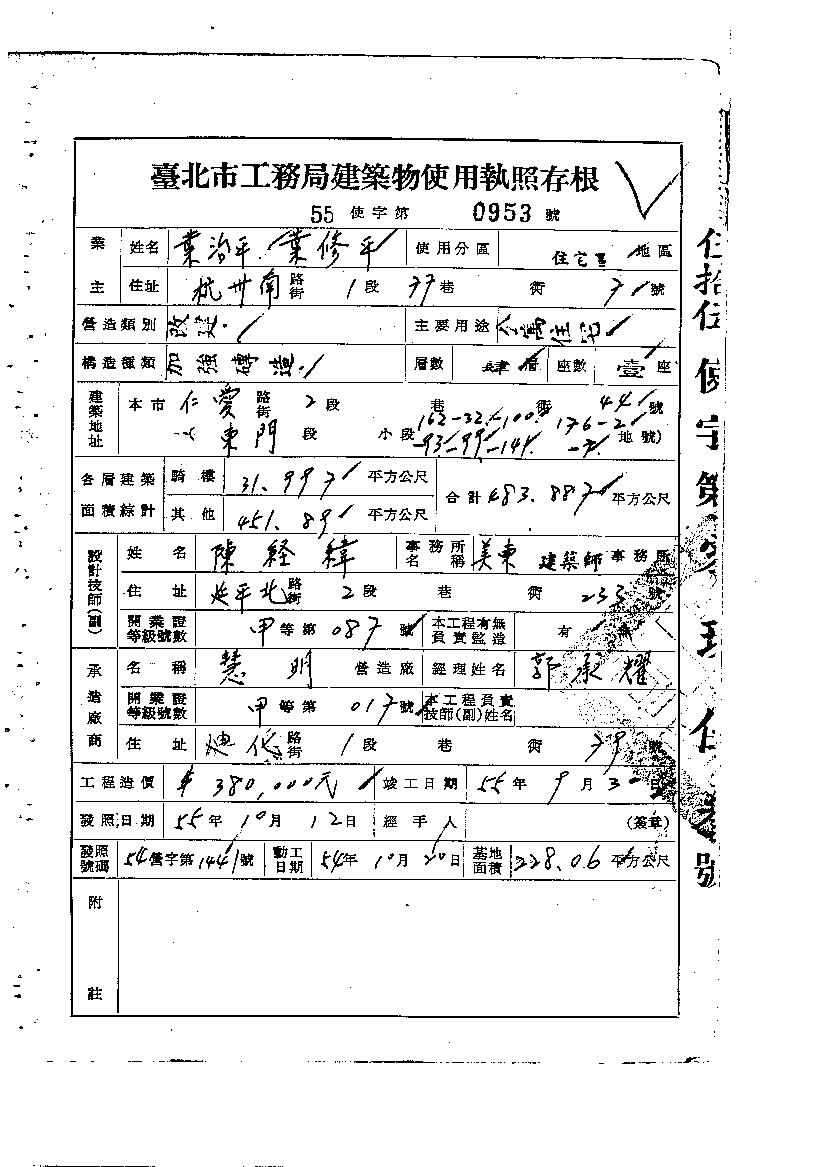 臺北市工務局建築物使用執照存根
55 使字第 0953 號
業主 姓名 葉治平 葉修平 使用分區 住宅區 地區
住址 杭州南 路街 1 段 77 巷 街 號
營造類別 改建 主要用途 公寓住宅
構造種類 加強磚造 層數 肆層 座數 壹座
建築地址 本市 仁愛 路街 2 段 巷 街 44 號
東門 段 小段 地號)
各層建築面積綜計 騎樓 31.997 平方公尺 合計 483.887 平方公尺
其他 451.89 平方公尺
設計技師(副) 姓名 陳經緯 事務所名稱 美東 建築師 事務所
住址 延平北 路街 2 段 巷 街 233 號
開業證等級號數 甲等第 087 號 本工程有無負責監造 有
承造廠商 名稱 慧明 營造廠 經理姓名 郭承耀
開業證等級號數 甲等第 017 號 本工程負責技師(副)姓名
住址 迪化 路街 1 段 巷 街 79 號
工程造價 380,000元 竣工日期 55年 9月 30日
發照日期 55年 10月 12日 經手人 (簽章)
發照號碼 54營字第1441號 動工日期 54年 10月 20日 基地面積 228.06 平方公尺
附註
伍拾伍使字第
號